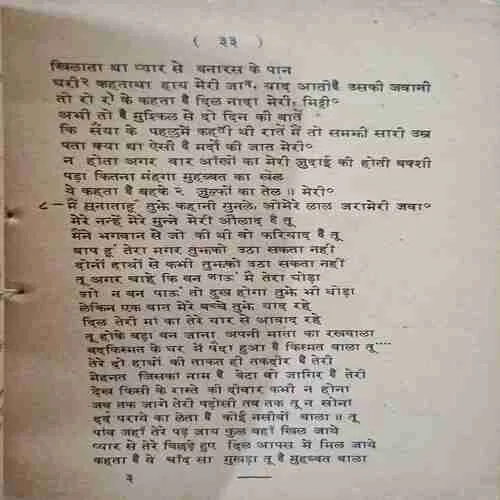 ( ३३ )
खिलाता था प्यार से बनारस के पान
घरी२ कहताथा हाय मेरी जा॰, याद आतीहै उसकी जवानी
तो रो रो के कहता है दिल नादा मेरी, मिट्टी॰
अभी तो है मुश्किल से दो दिन की बातें
कि सैंया के पहलुमें कहती थी रातें मैं तो समझी सारी उम्र
पता क्या था ऐसी है मर्दों की जात मेरी॰
न होता अगर वार आँखों का मेरी जुदाई की होती बक्शी
पड़ा कितना मंहगा मुहब्बत का खेल
ये कहता है बहके २ जुल्फों का तेल ॥ मेरी॰
८–मैं सुनाताहूं तुझे कहानी सुनले, ओमेरे लाल जरामेरी जवा॰
मेरे नन्हें मेरे मुन्ने मेरी औलाद है तू
मैंने भगवान से जो की थी वो फरियाद है तू
बाप हूं तेरा मगर तुझको उठा सकता नहीं
दोनों हाथों से कभी तुझको उठा सकता नहीं
तू अगर चाहे कि बन जाऊं मैं तेरा घोड़ा
जो न बन पाऊं तो दुख होगा तुझे भी थोड़ा
लेकिन एक बात मेरे बच्चे तुझे याद रहे
दिल तेरी मां का तेरे यार से आबाद रहे
तू होके बड़ा बन जाना अपनी माता का रखवाला
बदकिस्मत के घर में पैदा हुआ है किस्मत वाला तू....
तेरे दो हाथों की ताकत ही तकदीर है तेरी
मेहनत जिसका नाम है बेटा वो जागिर है तेरी
देख किसी के रास्ते की दीवार कभी न होना
जब तक जागे तेरी पड़ोसी तब तक तू न सोना
दर्द पराये का लेता है कोई नसीबों वाला ॥ तू
पांव जहाँ तेरे पड़ जाय फुल वहाँ खिल जाये
प्यार से तेरे बिछड़े हुए दिल आपस में मिल जाये
कहता है ये चाँद सा मुखड़ा तू है मुहब्बत वाला
३